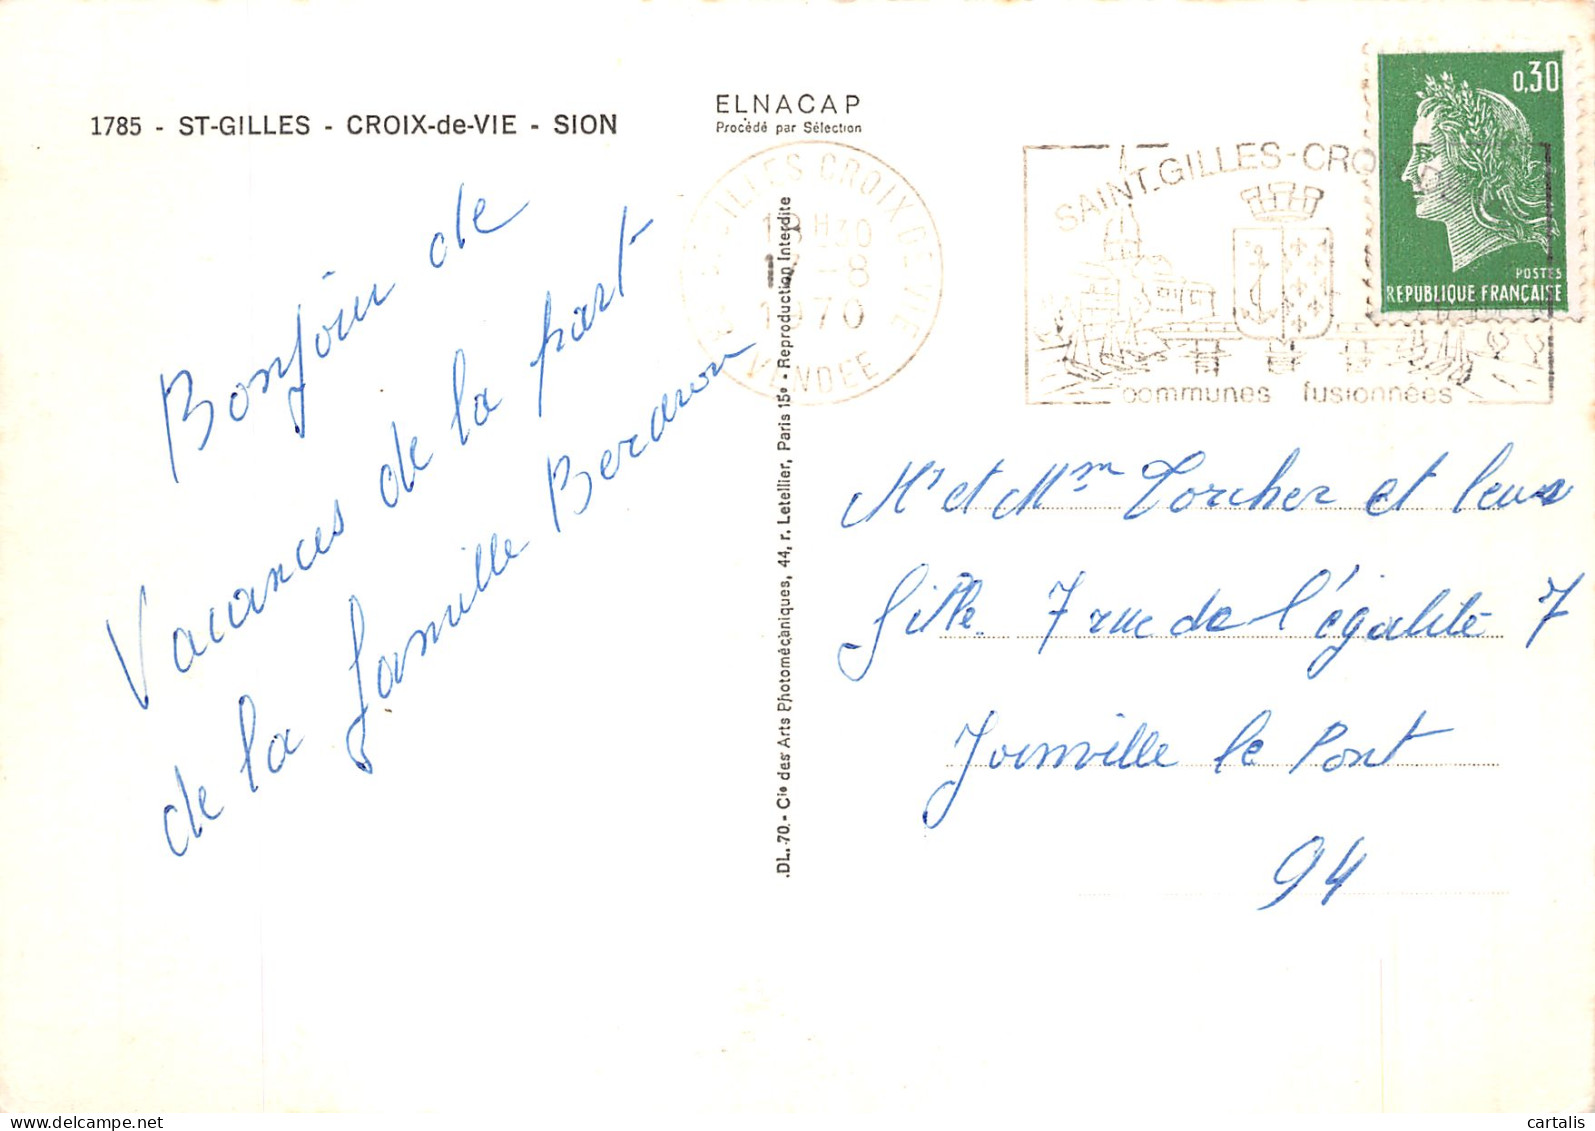 1785 - ST-GILLES - CROIX-de-VIE - SION
ELNACAP
Procédé par Sélection
Bonjour de
Vacances de la part
de la famille Berdron
ST-GILLES CROIX-DE-VIE
18H30
-8
1970
VENDEE
SAINT.GILLES-CROIX DE
communes fusionnées
0,30
POSTES
REPUBLIQUE FRANÇAISE
.DL. 70. - Cie des Arts Photomécaniques, 44, r. Letellier, Paris 15e - Reproduction Interdite
Mr et Mm Torcher et leur
fille 7 rue de l'égalité 7
Joinville le Pont
94
cartalis